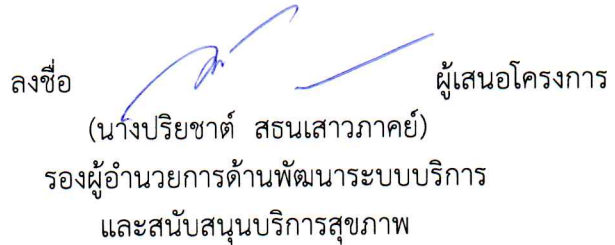 ลงชื่อ ผู้เสนอโครงการ
(นางปริยชาต์ สธนเสาวภาคย์)
รองผู้อำนวยการด้านพัฒนาระบบบริการ
และสนับสนุนบริการสุขภาพ